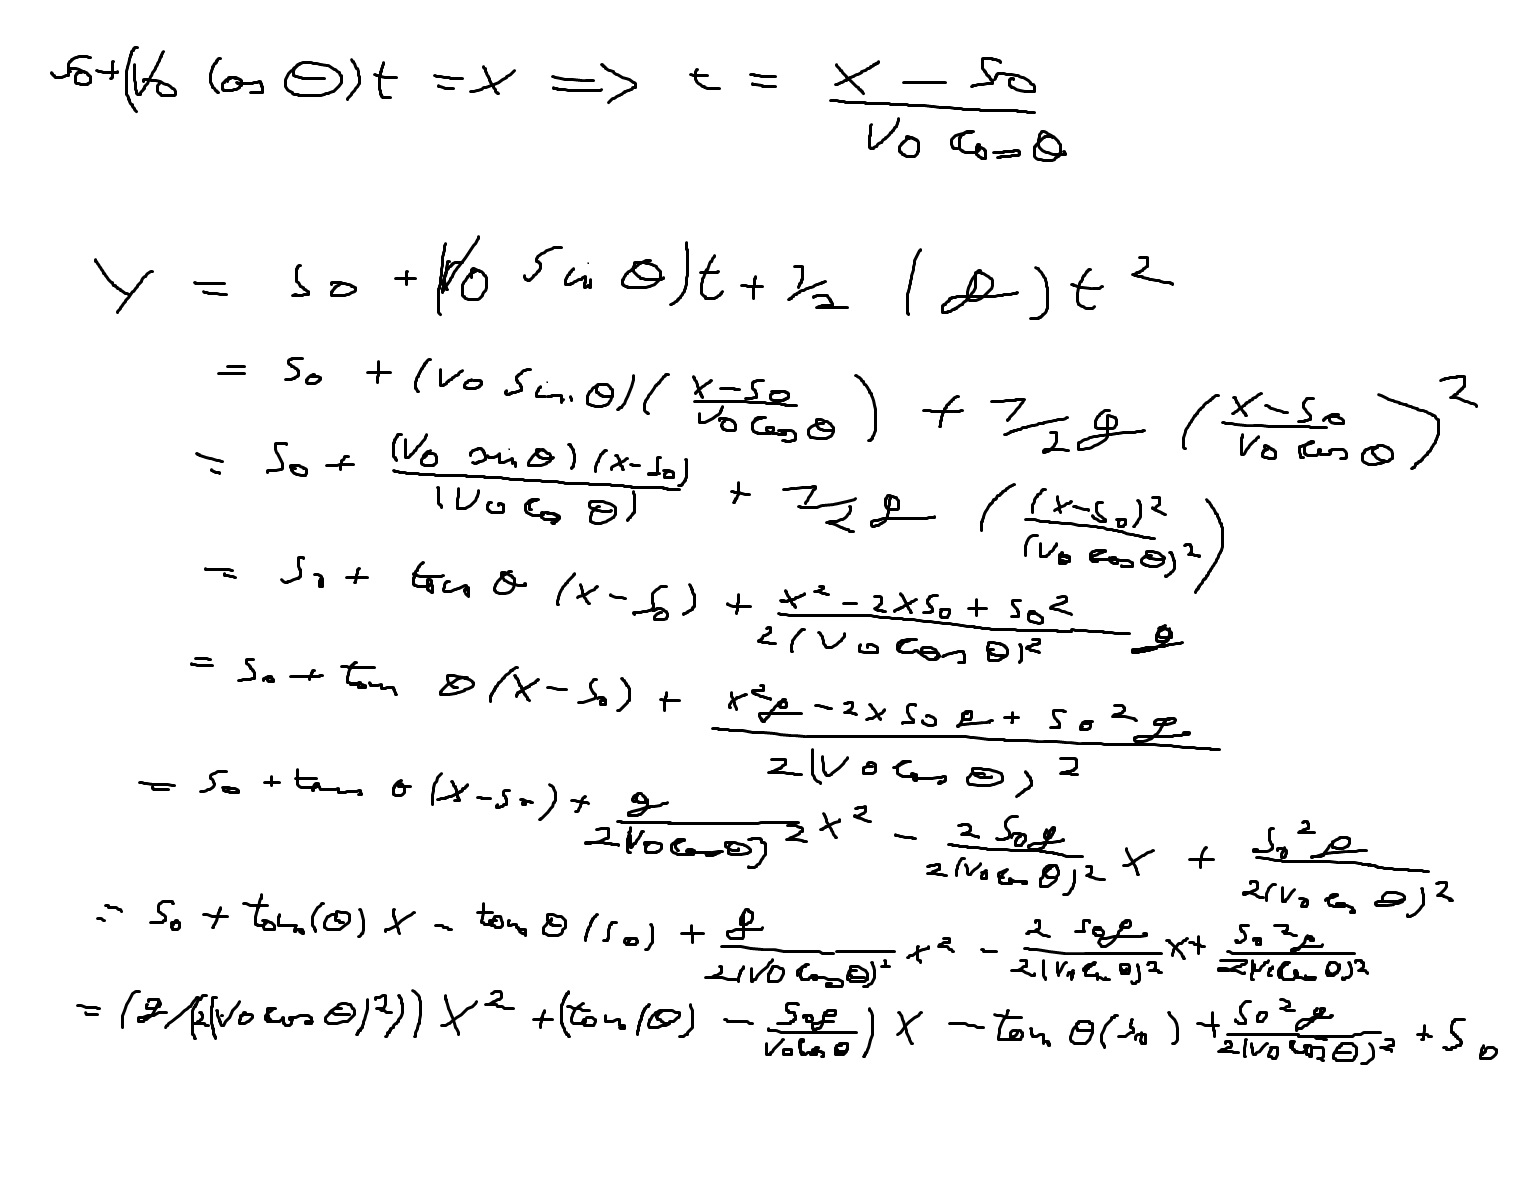 s₀+(v₀ cos θ)t = x => t = (x - s₀)/(v₀ cos θ)
y = s₀ + (v₀ sin θ)t + 1/2 (g)t²
= s₀ + (v₀ sin θ)((x-s₀)/(v₀ cos θ)) + 1/2 g ((x-s₀)/(v₀ cos θ))²
= s₀ + ((v₀ sin θ)(x-s₀))/((v₀ cos θ)) + 1/2 g ((x-s₀)²/(v₀ cos θ)²)
= s₀ + tan θ (x-s₀) + (x² - 2xs₀ + s₀²)/(2(v₀ cos θ)²) g
= s₀ + tan θ (x-s₀) + (x²g - 2x s₀ g + s₀² g)/(2(v₀ cos θ)²)
= s₀ + tan θ (x-s₀) + g/(2(v₀ cos θ)²) x² - (2 s₀g)/(2(v₀ cos θ)²) x + (s₀² g)/(2(v₀ cos θ)²)
= s₀ + tan(θ) x - tan θ (s₀) + g/(2(v₀ cos θ)²) x² - (2 s₀g)/(2(v₀ cos θ)²) x + (s₀² g)/(2(v₀ cos θ)²)
= (g/(2(v₀ cos θ)²)) x² + (tan(θ) - (s₀g)/(v₀ cos θ)) x - tan θ(s₀) + (s₀² g)/(2(v₀ cos θ)²) + s₀